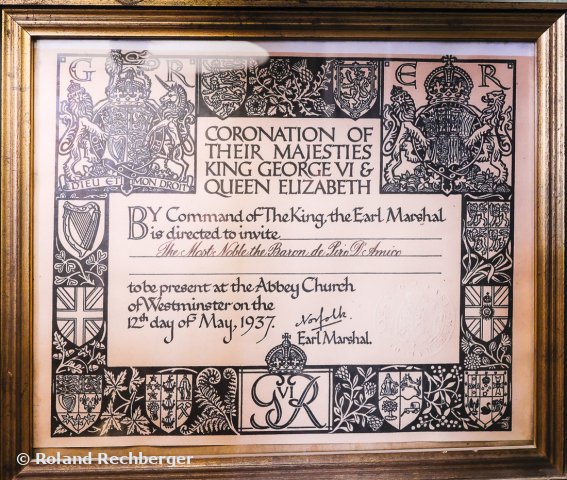 G R
E R
DIEU ET MON DROIT
CORONATION OF
THEIR MAJESTIES
KING GEORGE VI &
QUEEN ELIZABETH
BY Command of The King, the Earl Marshal
is directed to invite
The Most Noble the Baron de Piro D'Amico
to be present at the Abbey Church
of Westminster on the
12th day of May, 1937.
Norfolk
Earl Marshal.
G VI R
© Roland Rechberger